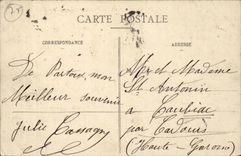 CARTE POSTALE
CORRESPONDANCE
ADRESSE
De Partout, mon
Meilleur souvenir
Julie
Mr et Madame
St Antonin
à Caubiac
par Cadours
(Haute-Garonne)